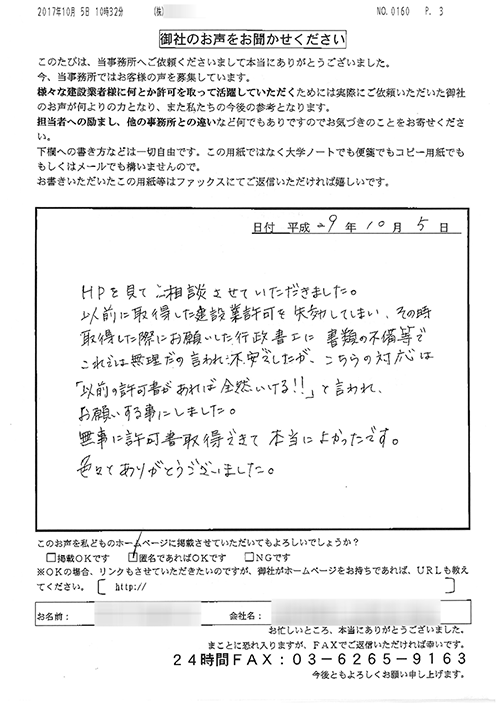 2017年10月 5日 10時32分 (株)
NO. 0160 P. 3
御社のお声をお聞かせください
このたびは、当事務所へご依頼くださいまして本当にありがとうございました。
今、当事務所ではお客様の声を募集しています。
様々な建設業者様に何とか許可を取って活躍していただくためには実際にご依頼いただいた御社
のお声が何よりの力となり、また私たちの今後の参考となります。
担当者への励まし、他の事務所との違いなど何でもありですのでお気づきのことをお寄せくださ
い。
下欄への書き方などは一切自由です。この用紙ではなく大学ノートでも便箋でもコピー用紙でも
もしくはメールでも構いませんので。
お書きいただいたこの用紙等はファックスにてご返信いただければ嬉しいです。
日付 平成 29 年 10 月 5 日
HPを見てご相談させていただきました。
以前に取得した建設業許可を失効してしまい、その時
取得した際にお願いした行政書士に書類の不備等で
これでは無理だの言われ不安でしたが、こちらの対応は
「以前の許可書があれば全然いける!!」と言われ、
お願いする事にしました。
無事に許可書取得できて本当によかったです。
色々とありがとうございました。
このお声を私どものホームページに掲載させていただいてもよろしいでしょうか?
□掲載OKです ☑匿名であればOKです □NGです
※OKの場合、リンクもさせていただきたいのですが、御社がホームページをお持ちであれば、URLも教え
てください。 [ http:// ]
お名前: 会社名:
お忙しいところ、本当にありがとうございました。
まことに恐れ入りますが、FAXでご返信いただければ幸いです。
24時間FAX:03-6265-9163
今後ともよろしくお願い申し上げます。